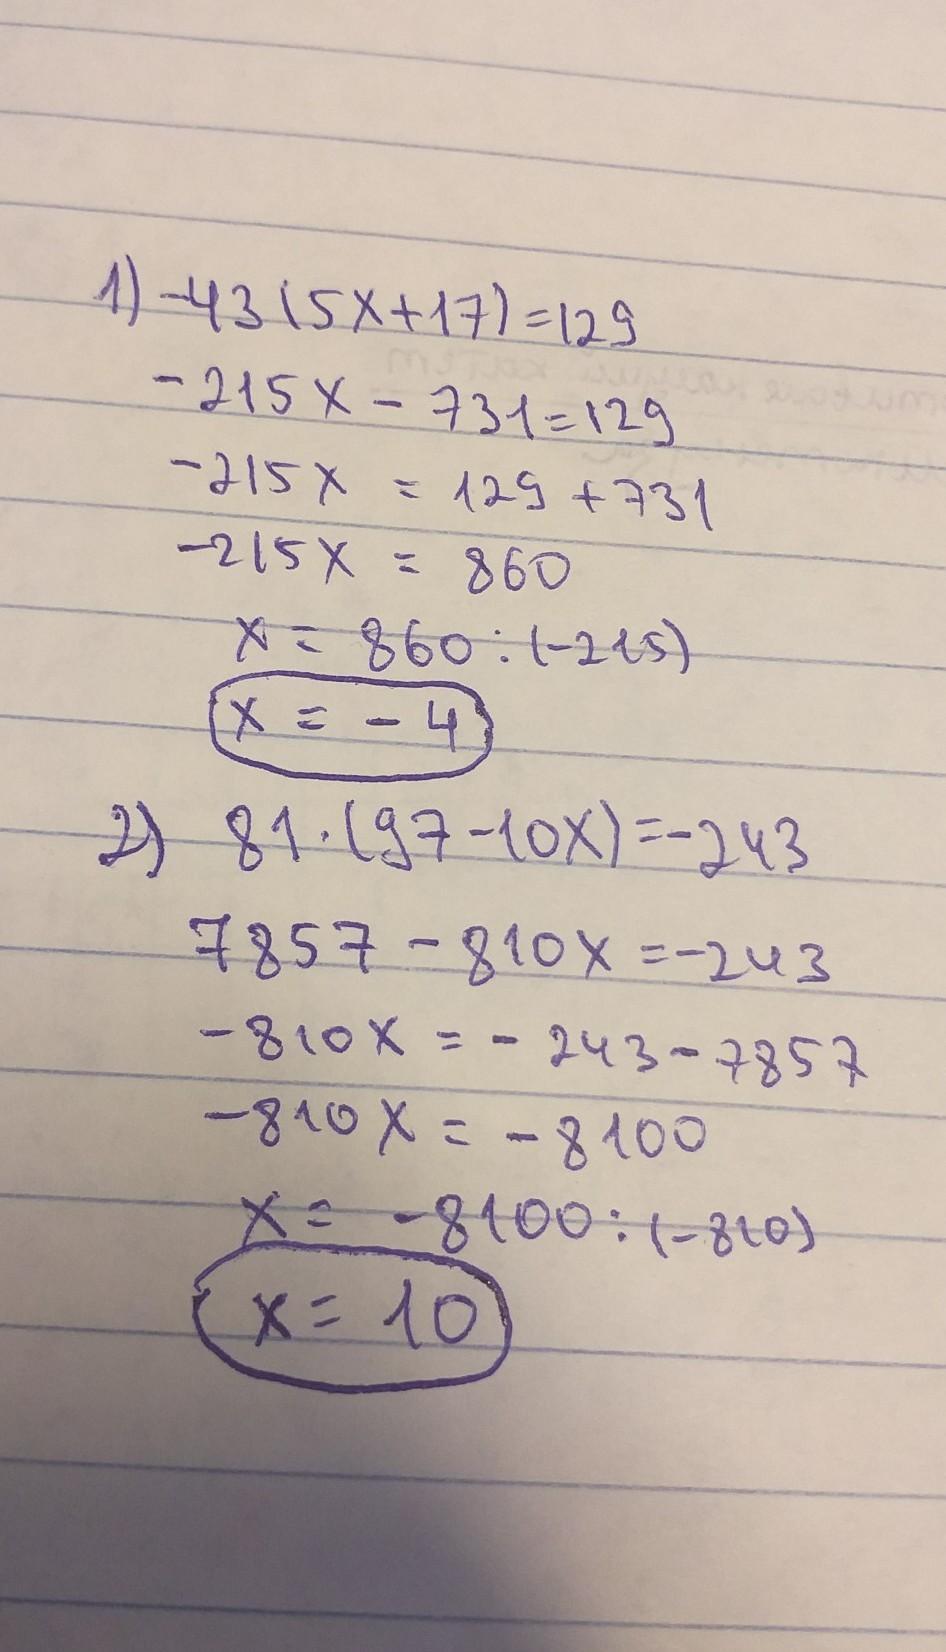 1) -43(5x+17)=129
-215x - 731=129
-215x = 129+731
-215x = 860
x = 860:(-215)
x = -4
2) 81·(97-10x)=-243
7857-810x=-243
-810x = -243-7857
-810x = -8100
x = -8100:(-810)
x = 10